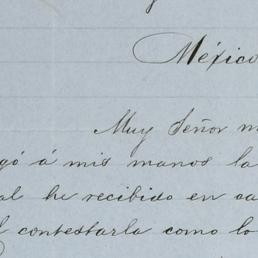 México
Muy Señor m
gó á mis manos la
al he recibido en ca
l contestarla como lo